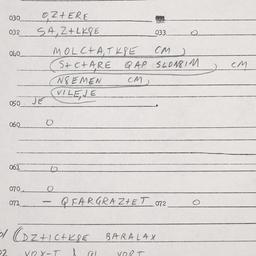 030 O,Z+ERE
032 SA,Z+LKSE 033 O
040 MOLC+A,TKSE CM ,
(S+C+A,RE GAP SLONBIM , CM
(NSEMEN CM ,
(VILE,JE
050 JE .
060 O
063 O
070 O
071 - QFARGRAZ+ET 072 O
01 ((DZ+IC+KSE BARALAX
02